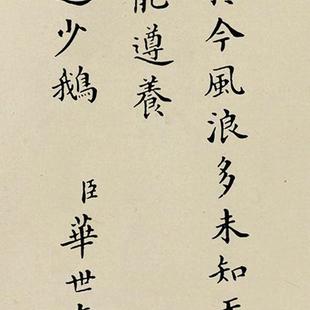 今風浪多未知
能遵養
少鵝
臣華世